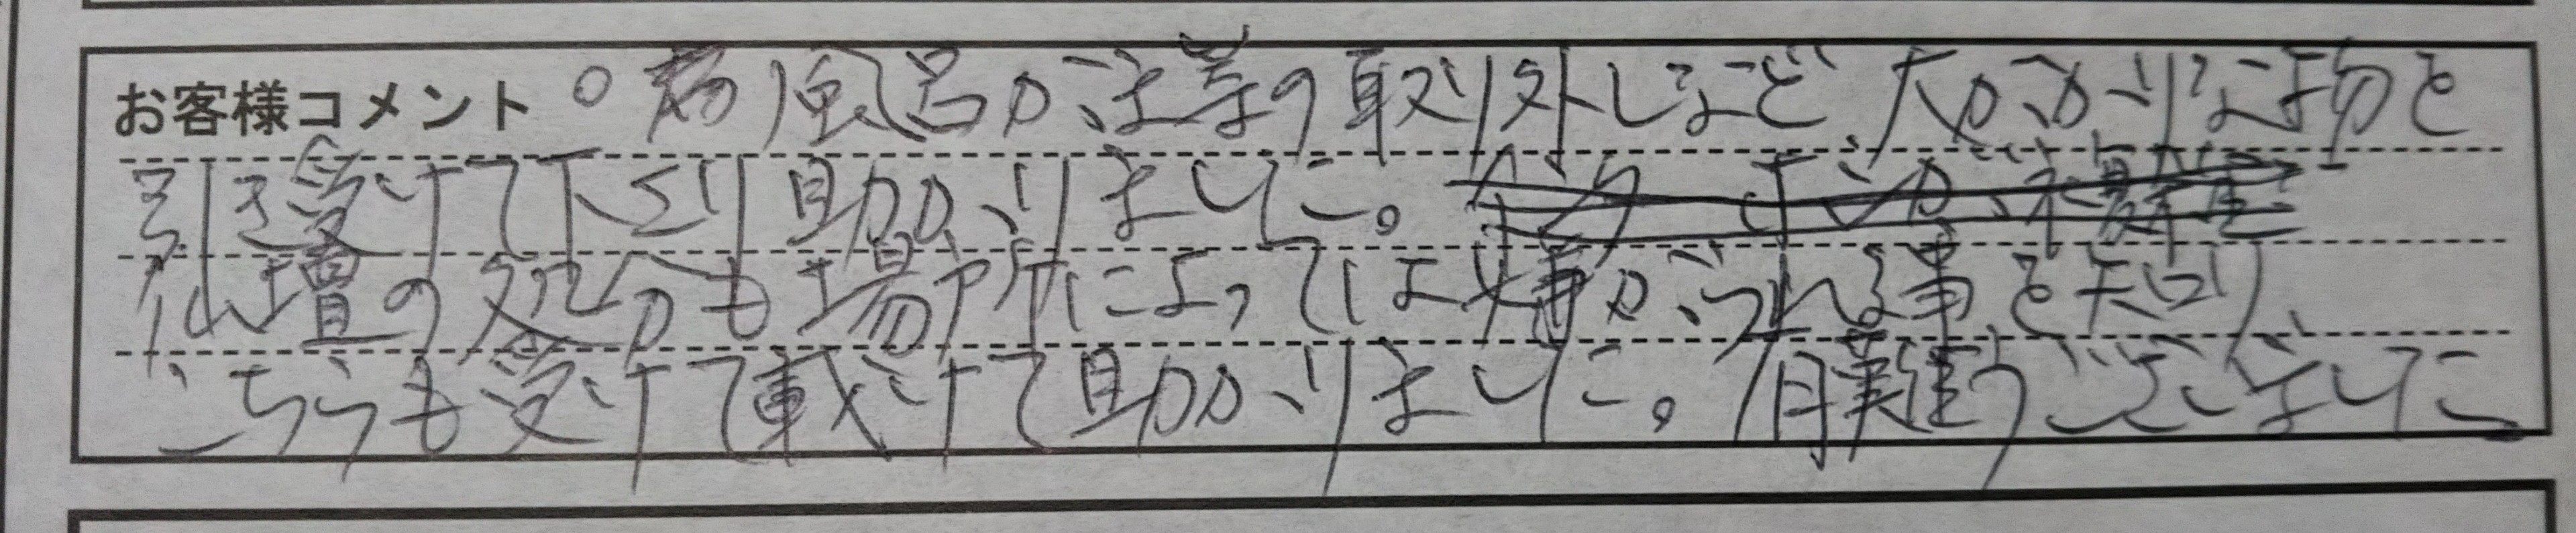 お客様コメント ○お風呂がま等の取り外しなど、大がかりな物を
引き受けて下さり助かりました。
仏壇の処分も場所によっては嫌がられる事を知り、
こちらも受けて載けて助かりました。有難うございました